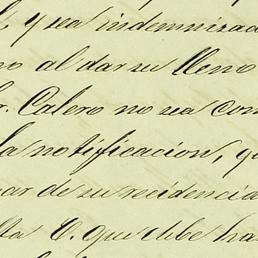 y sea indemnizad
al dar su lleno
r. Calero no sea com
la notificacion, q
ar de su recidencia
E. que debe ha